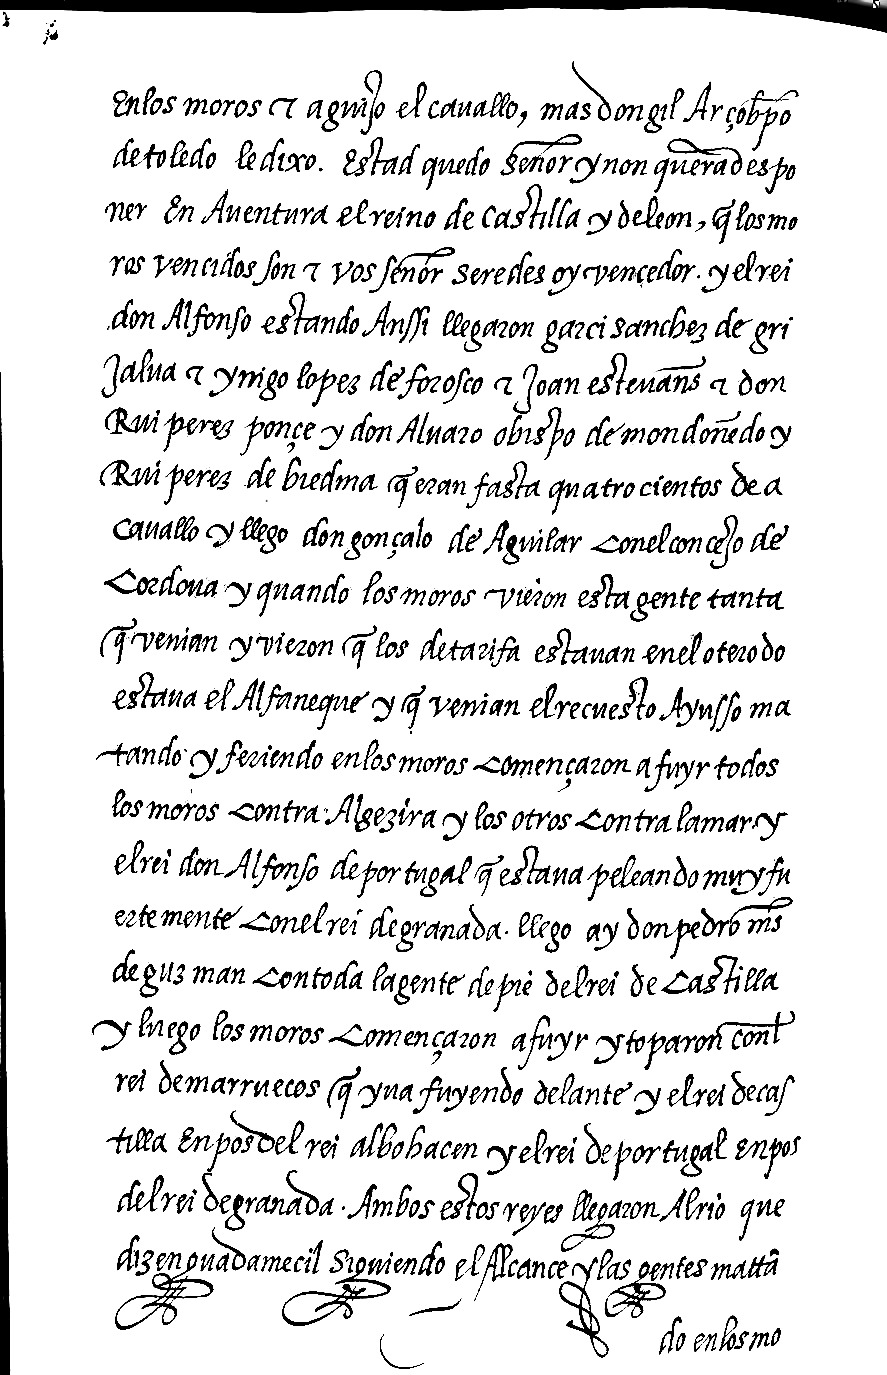 Enlos moros ⁊ aguijo el cauallo, mas don gil Arçobp̃o
de toledo le dixo. Estad quedo señor y non querades po
ner En Auentura el reino de castilla y de leon, q̃ los mo
ros vencidos son ⁊ vos señor seredes oy vencedor. y el rei
don Alfonso estando Anssi llegaron garci sanchez de gri
Jalua ⁊ ynigo lopez de forosco ⁊ Joan esteuañs ⁊ don
Rui perez ponçe y don Aluaro obispo de mondoñedo y
Rui perez de biedma q̃ eran fasta quatrocientos de a
cauallo y llego don gonçalo de Aguilar conel concejo de
Cordoua y quando los moros vieron esta gente tanta
q̃ venian y vieron q̃ los de tarifa estauan enel otero do
estaua el Alfaneque y q̃ venian el recuesto Ayusso ma
tando y feriendo enlos moros començaron a fuyr todos
los moros contra Algezira y los otros contra la mar. y
el rei don Alfonso de portugal q̃ estaua peleando muy fu
erte mente conel rei de granada. llego ay don pedro m̃s
de guzman con toda la gente de pie del rei de castilla
y luego los moros començaron a fuyr y toparon conl̃
rei de marruecos q̃ yua fuyendo delante y el rei de cas
tilla En pos del rei albohacen y el rei de portugal en pos
del rei de granada. Ambos estos reyes llegaron Al rio que
dizen guadamecil siguiendo el Alcance y las gentes mattã
do en los mo